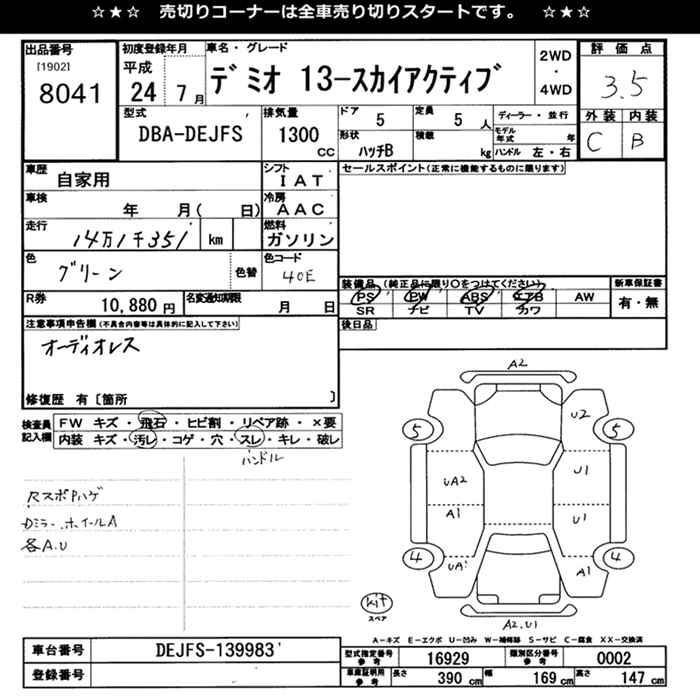 ☆★☆ 売切りコーナーは全車売り切りスタートです。 ☆★☆
出品番号 初度登録年月 車名・グレード 評価点
[1902] 平成 2WD
8041 24 7月 デミオ 13-スカイアクティブ ・ 3.5
4WD
型式 排気量 ドア 定員 ディーラー・並行 外装 内装
DBA-DEJFS 1300 CC 5 5 人 モデル年式 年 C B
形状 積載
ハッチB kg ハンドル 左・右
車歴 シフト セールスポイント(正常に機能するものに限ります)
自家用 IAT
車検 冷房
年 月( 日) AAC
走行 燃料
14万1千351 km ガソリン
色 色替 色コード 装備品(純正品に限り○をつけてください) 新車保証書
グリーン 40E PS PW ABS エアB AW 有・無
R券 名変通知期限 SR ナビ TV カワ
10,880 円 月 日 後日品
注意事項申告欄(不具合内容等は具体的に記入して下さい)
オーディオレス
修復歴 有〔箇所 〕
検査員記入欄 FW キズ・飛石・ヒビ割・リペア跡・×要
内装 キズ・汚レ・コゲ・穴・スレ・キレ・破レ
ハンドル
RスポPハゲ
Dミラー、ホイールA
各A.U
A2
U2
5 5
UA2 U1
A1 U1
4 UA1 A1 4
kit
スペア
A2.U1
A-キズ E-エクボ U-凹み W-補修跡 S-サビ C-腐食 XX-交換済
車台番号 DEJFS-139983
登録番号
型式指定番号参考 16929 類別区分番号参考 0002
車庫証明用参考 長さ 390 cm 幅 169 cm 高さ 147 cm